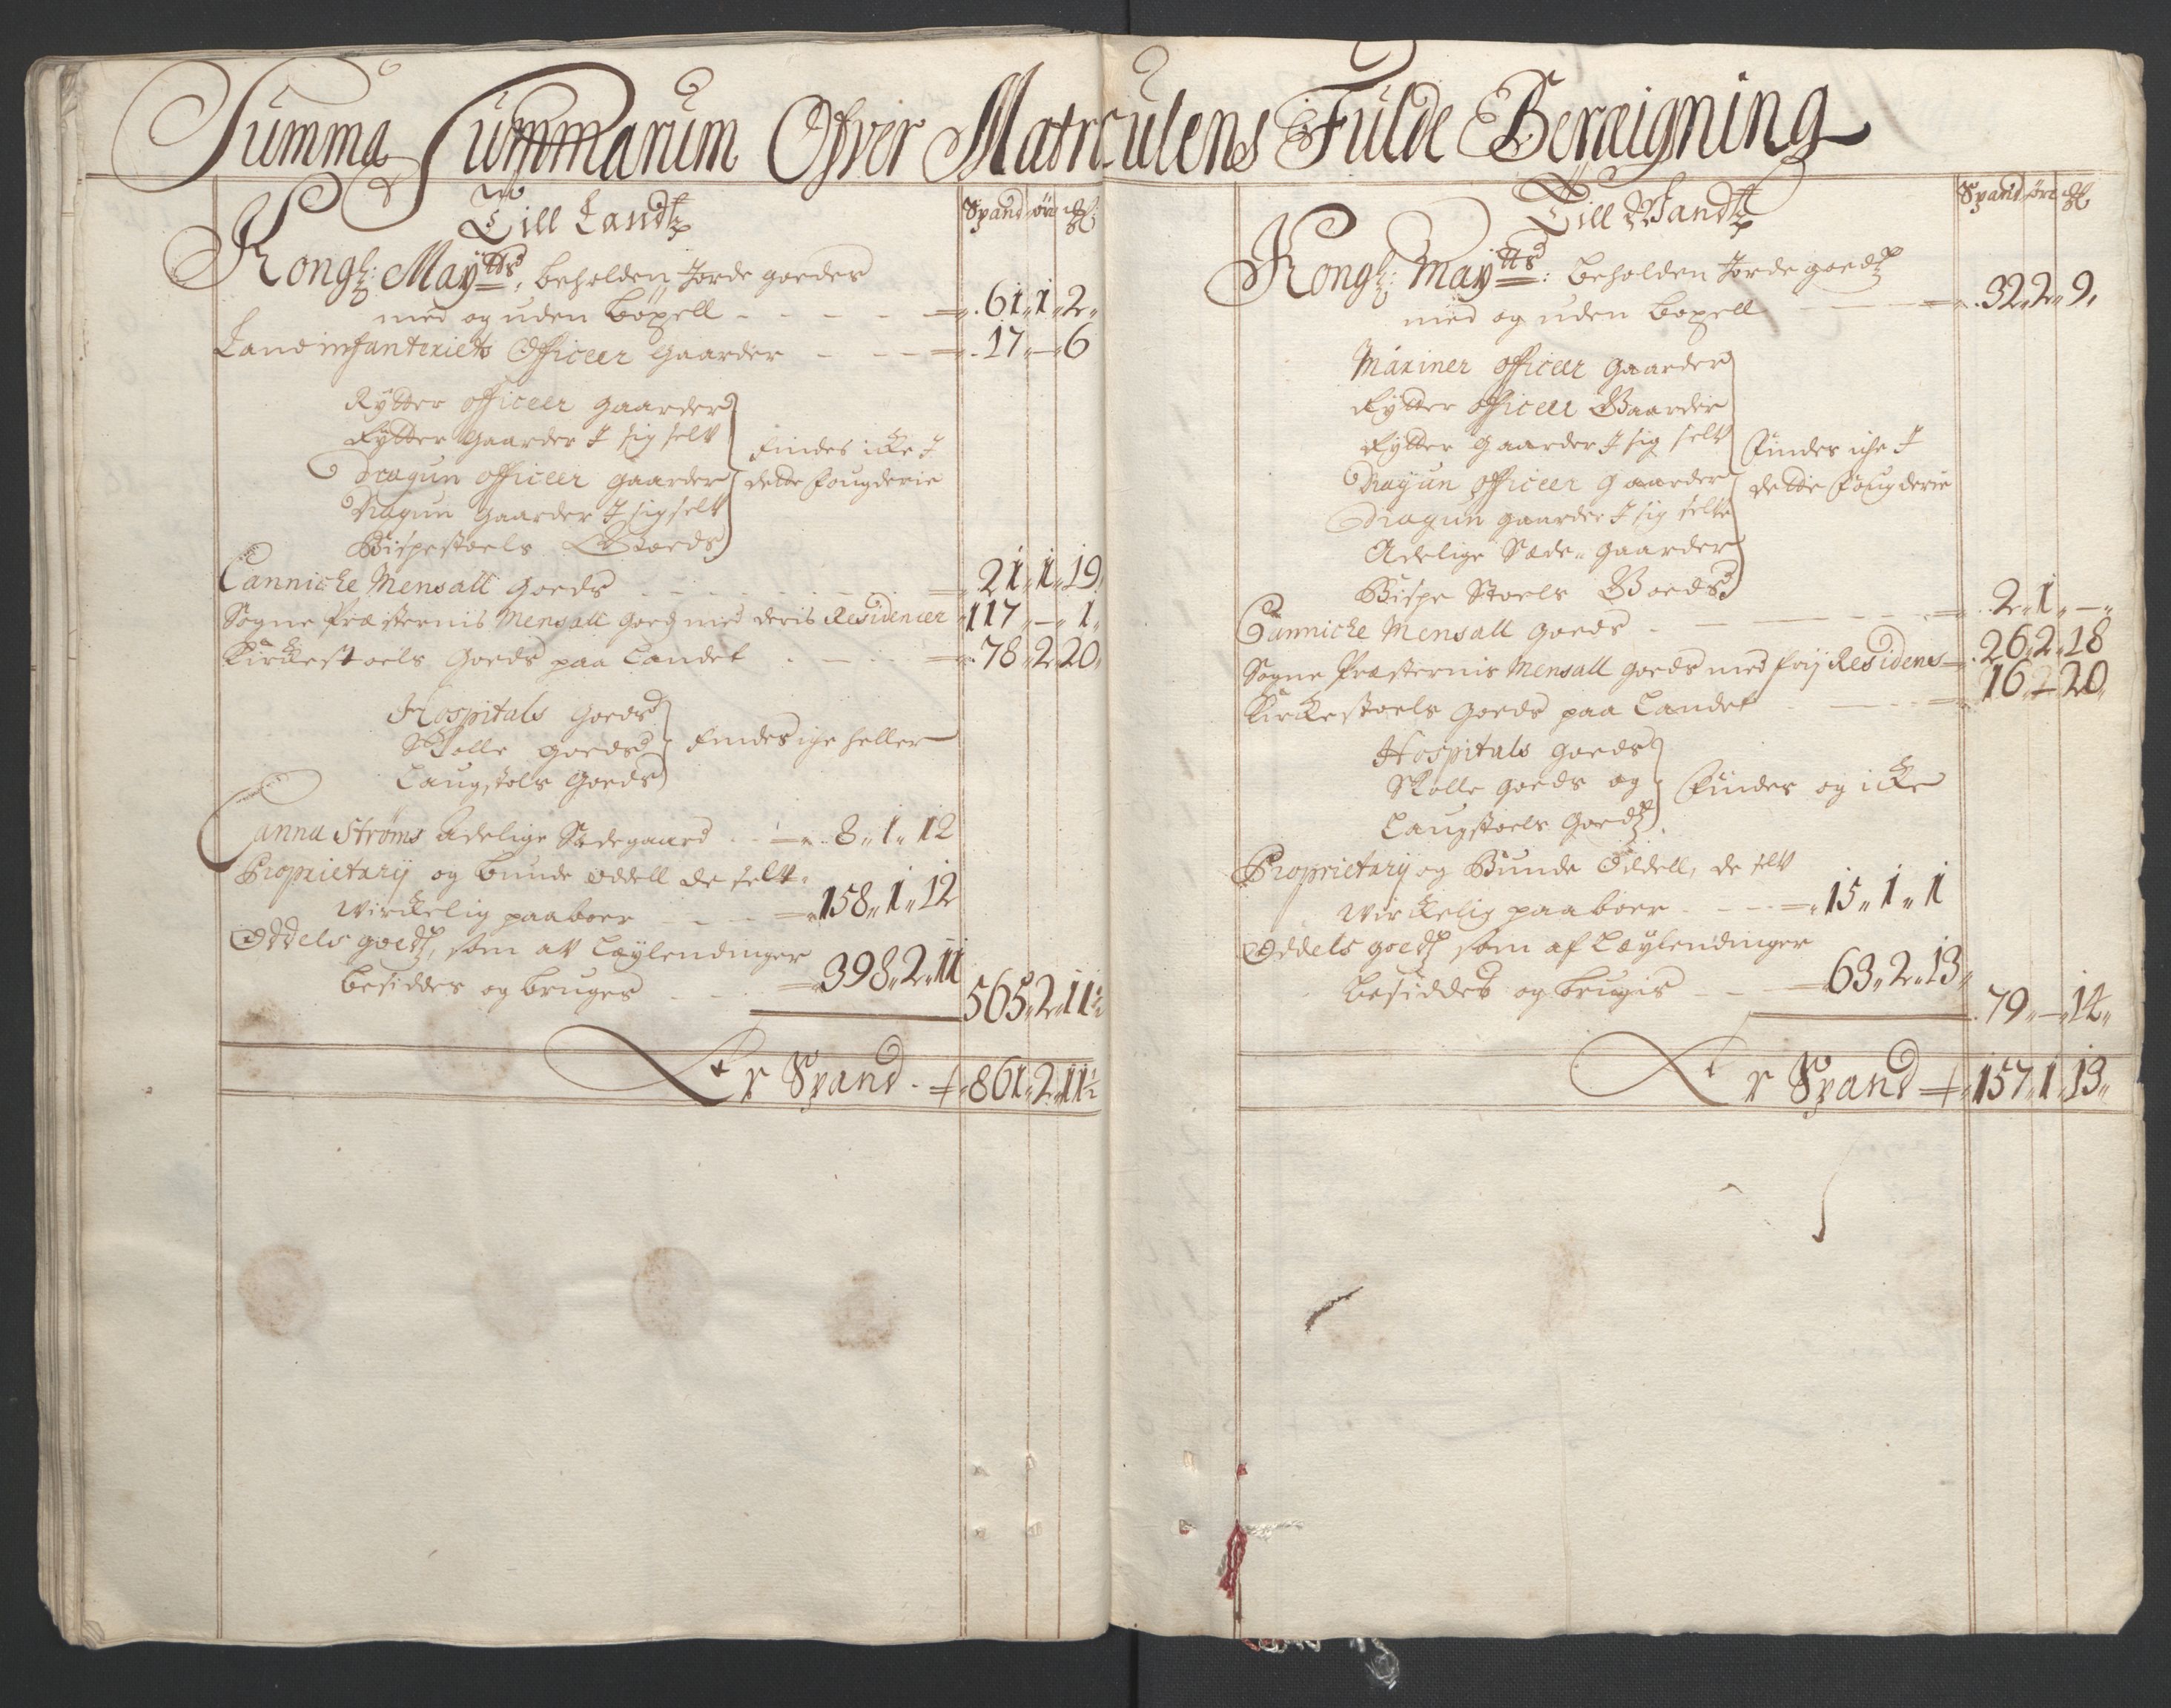 Summa Summarum Ofver Matriculens Fulde Beræigning
Till Landtz
Spand øre
Kongl: Maÿtts: beholden Jorde goeder
med og uden böxell - - - - 61 „ 1 „ 2 „
Landinfanteriets Officeer Gaarder - - - 17 „ — „ 6
Rÿtter officeer gaarder
Rÿtter Gaarder J sig selv
Dragun officeer gaarder
Dragun gaarder J sig selv
Bispestoels Goeds
findes icke J
dette fougderie
Cannicke Mensall goeds - - - - 21 „ 1 „ 19 „
Sogne Præsternis Mensall goeds med deris Residencer 117 „ — „ 1 „
Kirckestoels Goeds paa Landet - - - 78 „ 2 „ 20 „
Hospitals Goeds
Skolle goeds
Laugstols Goeds
findes iche heller
Canna Strøms Adelige Sædegaard - - 8 „ 1 „ 12
Proprietarij og bunde oddell de selv
virckelig paaboer - - - 158 „ 1 „ 12
Oddels goedtz, som av Leÿlendinger
besiddes og bruges - - 398 „ 2 „ 11
565 „ 2 „ 11½
Er Spand - 861 „ 2 „ 11½
Till Wandtz
Spand øre
Kongl: Maÿtts: beholden Jorde goedtz
med og uden boxell - - 32 „ 2 „ 9 „
Mariner officeer gaarder
Rÿtter officeer Gaarder
Rÿtter gaarder J sig selv
Dragun officeer gaarder
Dragun gaarder J sig selv
Adelige Sæde-gaarder
Bispe Stoels Goeds
findes iche J
dette fougderie
Cannicke Mensall goeds - - - - 2 „ 1 „ — „
Sogne Præsternis Mensall goeds med frij Residens 26 „ 2 „ 18
Kirckestoels goeds paa Landet - - - 16 „ — „ 20 „
Hospitals goeds
Skolle goeds og
Laugstoels Goedtz
findes og icke
Proprietarij og Bunde Oddell, de selv
virckelig paaboer - - - 15 „ 1 „ 1
Oddels goedtz som af Leÿlendinger
besiddes og brugis - - 63 „ 2 „ 13 „
79 „ — „ 14 „
Er Spand 157 „ 1 „ 13 „